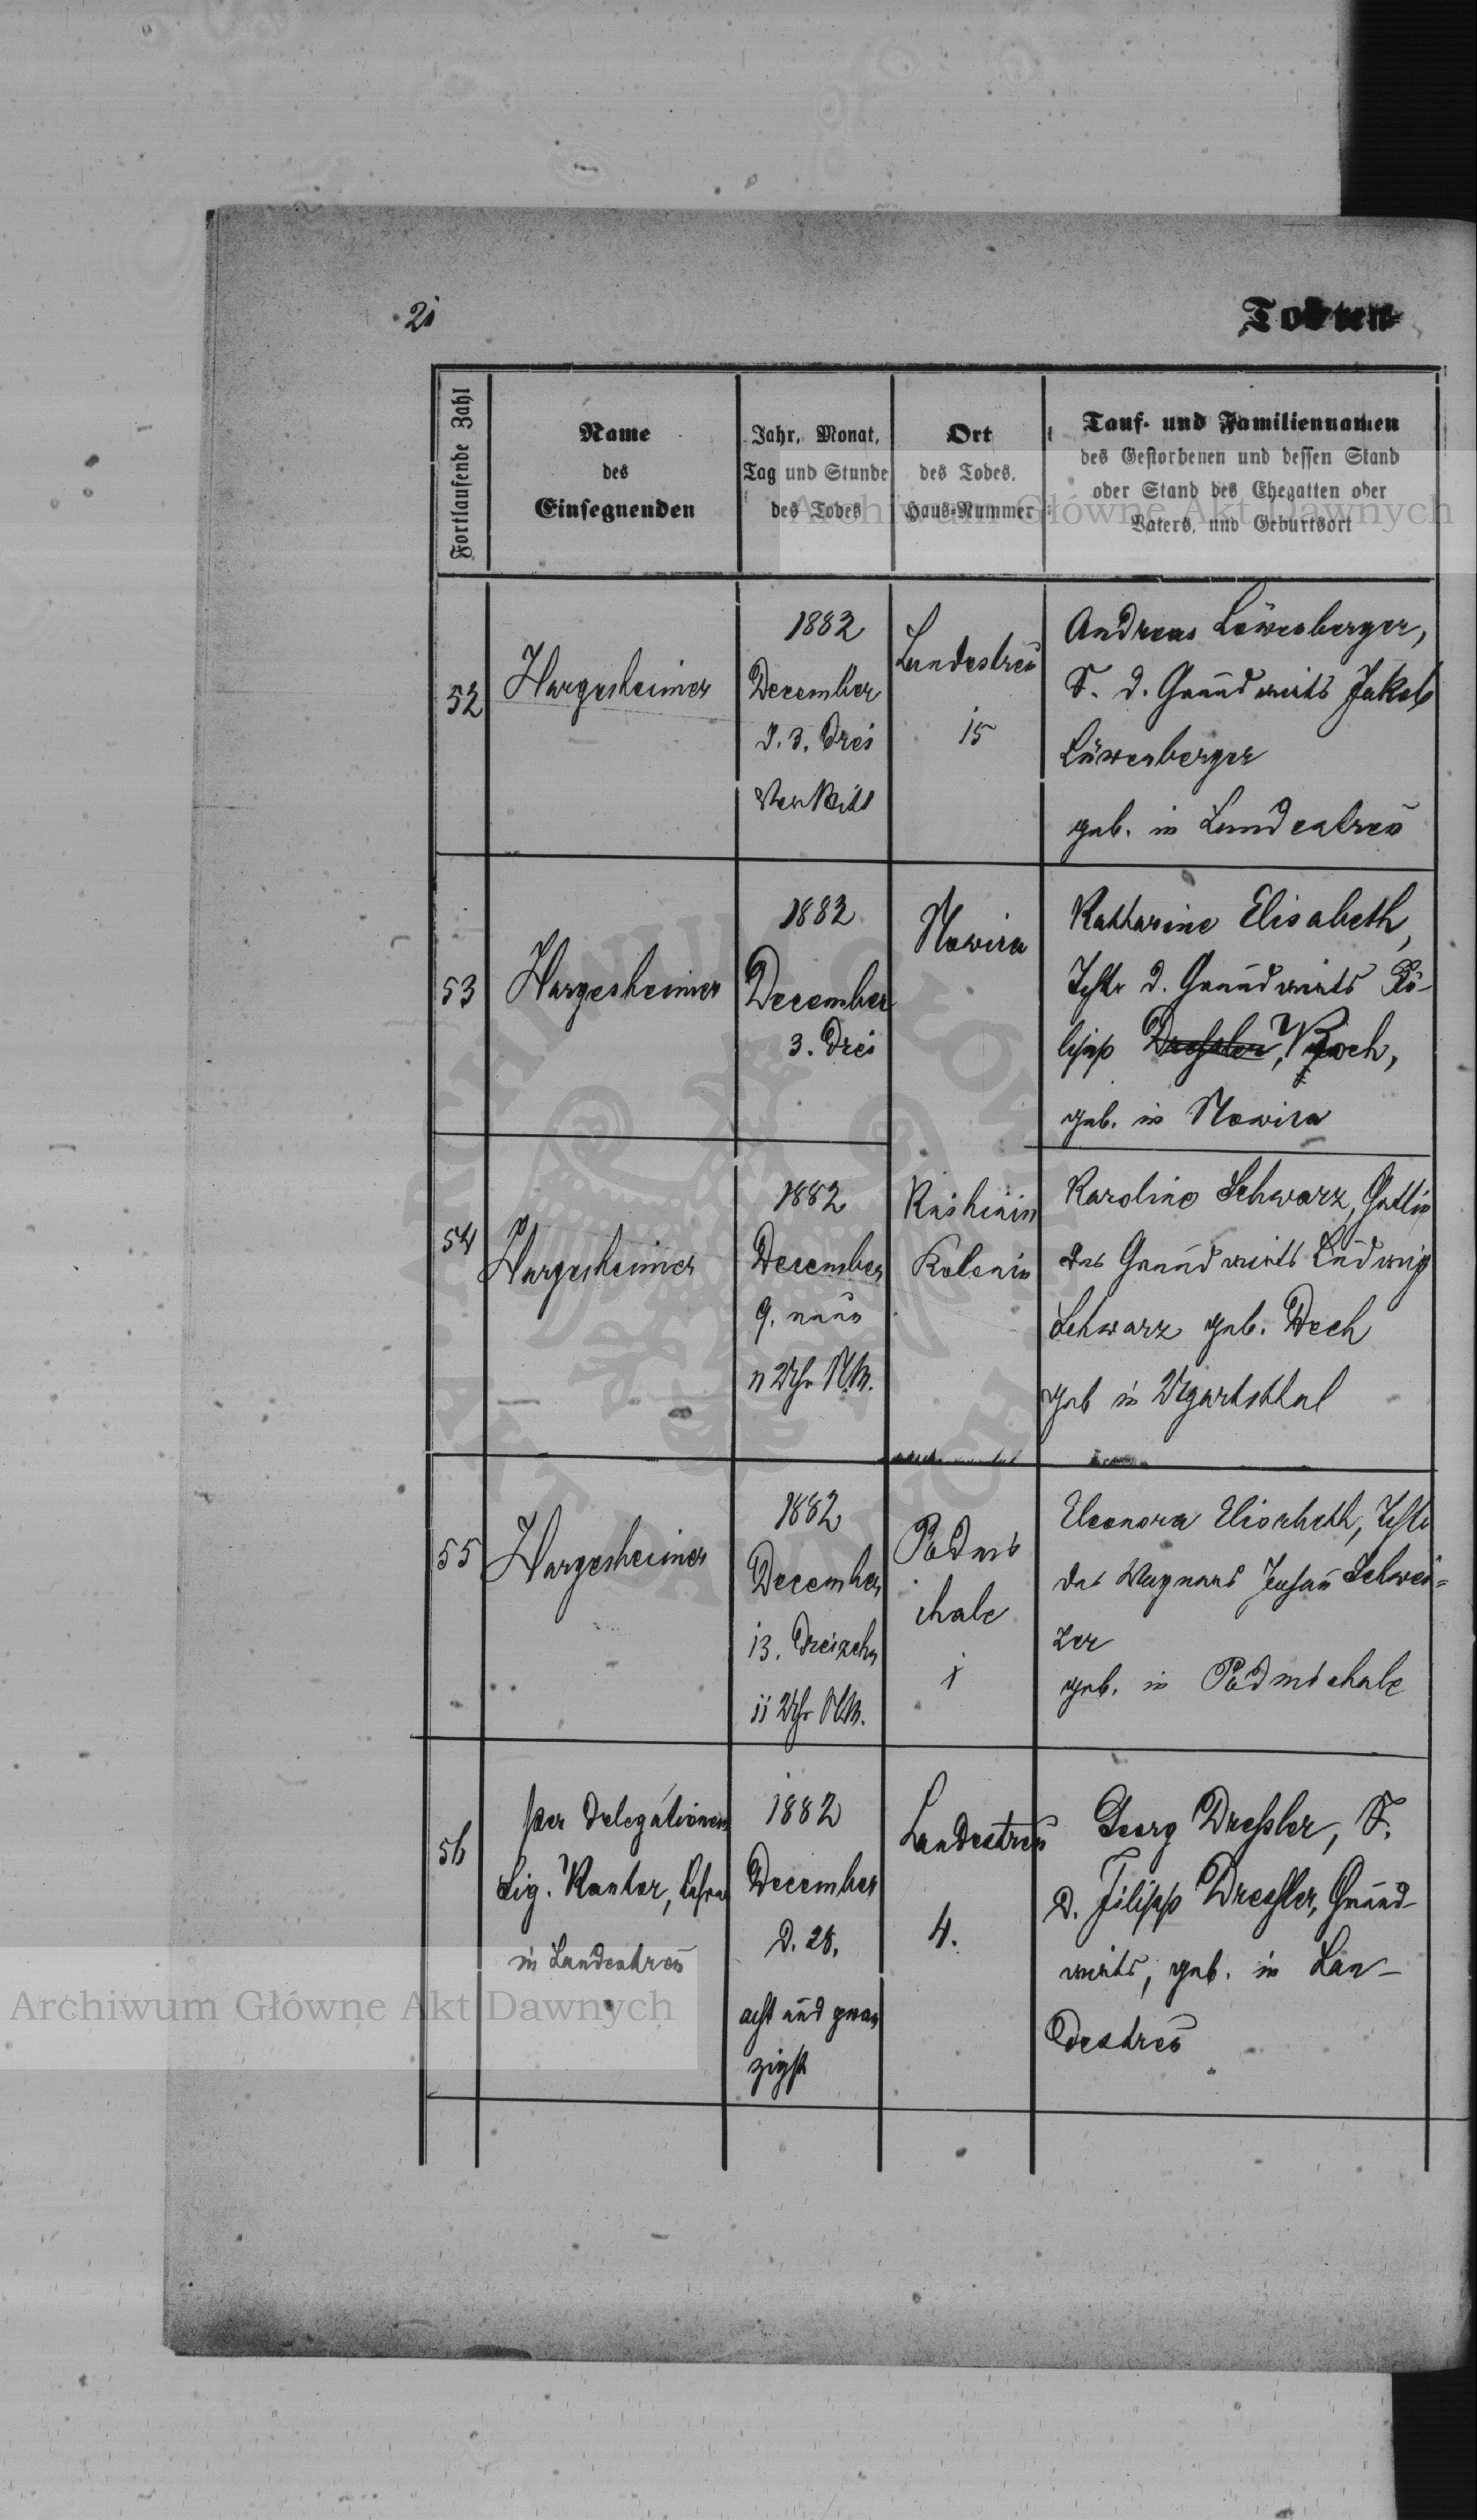 21
Todten-
Fortlaufende Zahl
Name
des
Einsegnenden
Jahr, Monat,
Tag und Stunde
des Todes
Ort
des Todes,
Haus-Nummer
Tauf- und Familiennamen
des Gestorbenen und dessen Stand
oder Stand des Ehegatten oder
Vaters, und Geburtsort
Archiwum Główne Akt Dawnych
52
Hargesheimer
1882
December
d. 3. Drei
Landestreu
15
Andreas Löwenberger,
S. d. Grundwirts Jakob
Löwenberger
geb. in Landestreu
53
Hargesheimer
1882
December
3. Drei
Nowica
Katharine Elisabeth,
Tchtr d. Grundwirts
lipp Dreßler, Koch,
geb. in Nowica
54
Hargesheimer
1882
December
9. neun
Uhr N.M.
Kolonie
Karoline Schwarz, Gattin
des Grundwirts Ludwig
Schwarz geb. Dech
geb in Ugartsthal
55
Hargesheimer
1882
December
13. Dreizehn
11 Uhr
Podmi
chale
1
Eleonora Elisabeth, Tcht
des Wagners Schwei-
zer
geb. in Podmichale
56
per Delegationem
Sig. Kantor, Lehrer
in Landestreu
1882
December
d. 28.
acht und zwan
zigst
Landestreu
4.
Georg Dreßler, S.
d. Filipp Dreßler, Grund-
wirts, geb. in Lan-
destreu
Archiwum Główne Akt Dawnych
ARCHIWUM GŁÓWNE AKT DAWNYCH